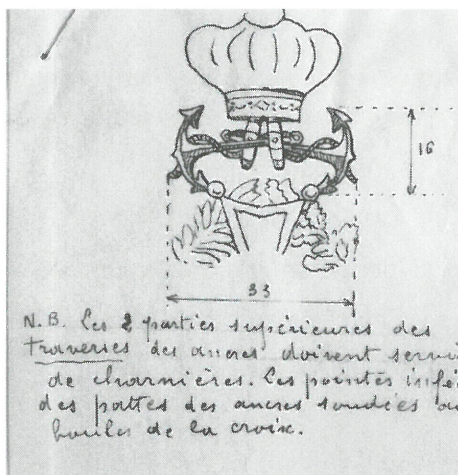 16
33
N.B. Les 2 parties supérieures des
traverses des ancres doivent servi
de charnières. Les pointes infé
des pattes des ancres soudées au
boules de la croix.